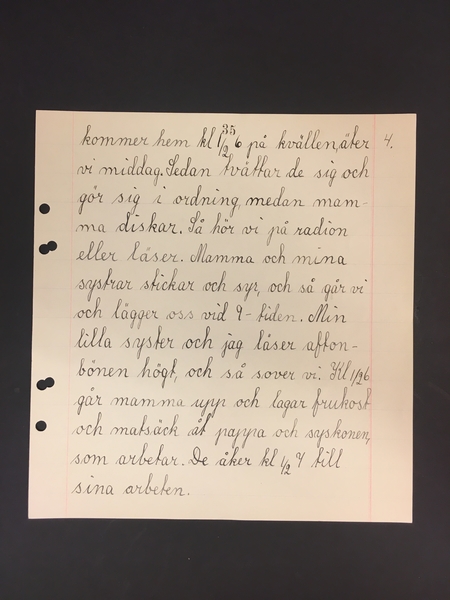 35
kommer hem kl 1/2 6 på kvällen, äter 4.
vi middag. Sedan tvättar de sig och
gör sig i ordning, medan mam-
ma diskar. Så hör vi på radion
eller läser. Mamma och mina
systrar stickar och syr, och så går vi
och lägger oss vid 9-tiden. Min
lilla syster och jag läser afton-
bönen högt, och så sover vi. Kl 1/2 6
går mamma upp och lagar frukost
och matsäck åt pappa och syskonen,
som arbetar. De åker kl 1/2 7 till
sina arbeten.